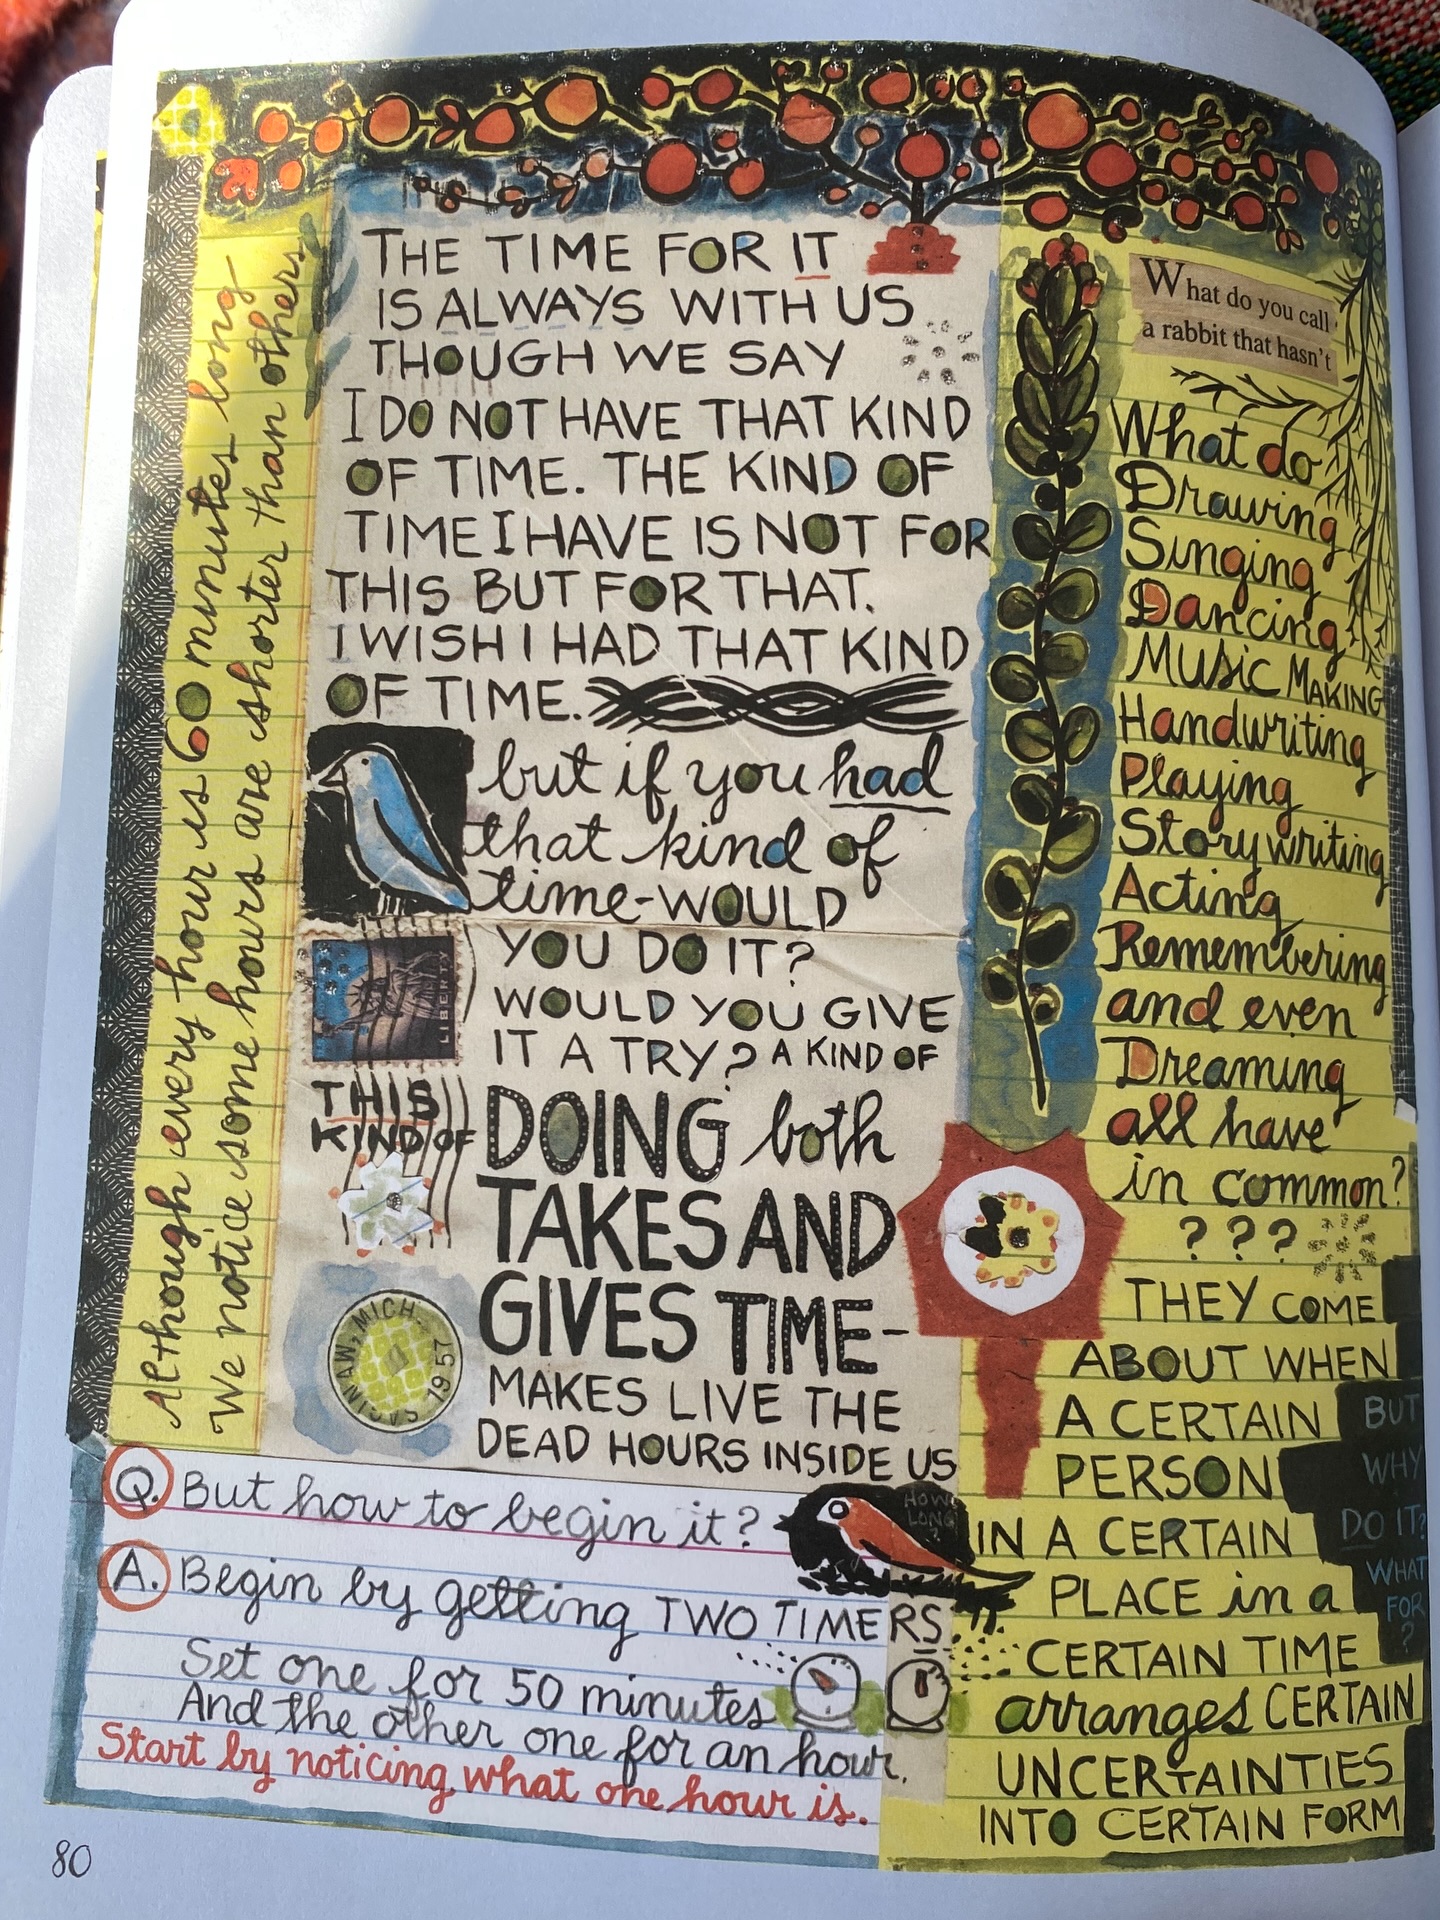 Although every hour is 60 minutes long-
We notice some hours are shorter than others
THE TIME FOR IT
IS ALWAYS WITH US
THOUGH WE SAY
I DO NOT HAVE THAT KIND
OF TIME. THE KIND OF
TIME I HAVE IS NOT FOR
THIS BUT FOR THAT.
I WISH I HAD THAT KIND
OF TIME.
but if you had
that kind of
time-WOULD
YOU DO IT?
WOULD YOU GIVE
IT A TRY? A KIND OF
LIBERTY
THIS
KIND OF
DOING both
TAKES AND
GIVES TIME-
MAKES LIVE THE
DEAD HOURS INSIDE US
SAGINAW, MICH.
1957
Q. But how to begin it?
A. Begin by getting TWO TIMERS
Set one for 50 minutes
And the other one for an hour.
Start by noticing what one hour is.
HOW
LONG
?
What do you call
a rabbit that hasn't
What do
Drawing
Singing
Dancing
MUSIC MAKING
Handwriting
Playing
Story writing
Acting
Remembering
and even
Dreaming
all have
in common?
? ? ?
THEY COME
ABOUT WHEN
A CERTAIN
PERSON
IN A CERTAIN
PLACE in a
CERTAIN TIME
arranges CERTAIN
UNCERTAINTIES
INTO CERTAIN FORM
BUT
WHY
DO IT?
WHAT
FOR
?
80